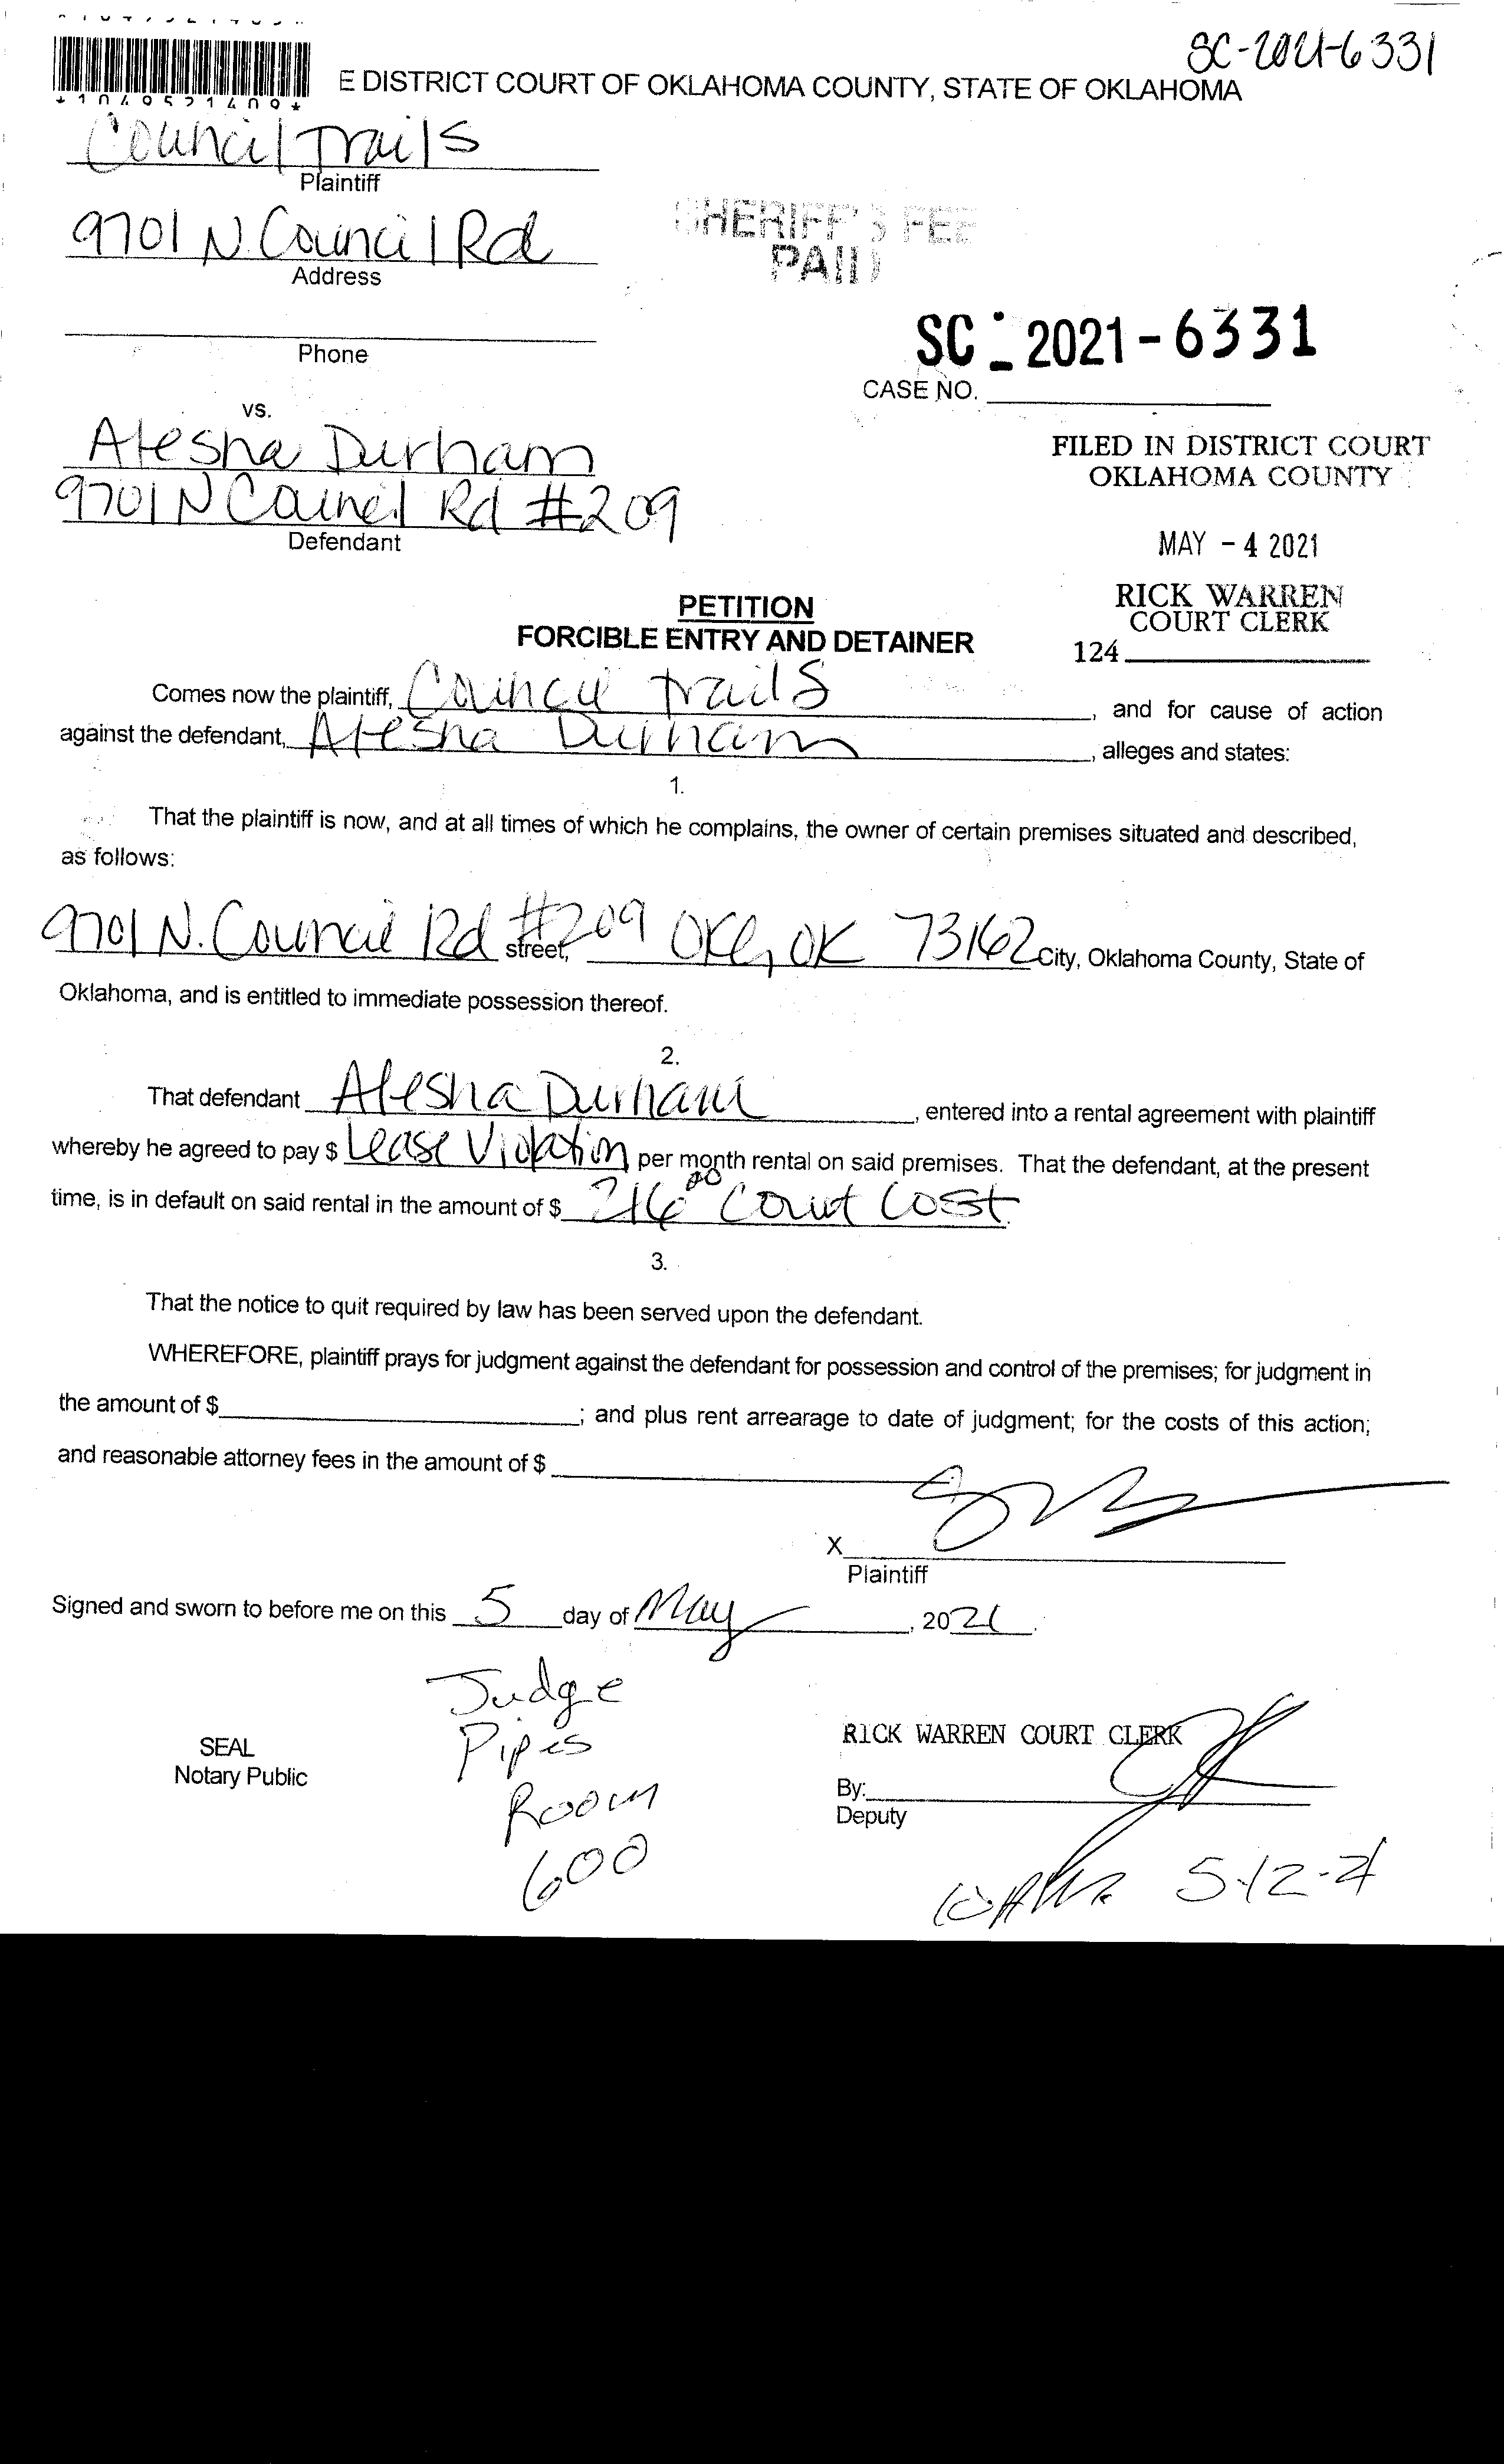 SC-2021-6331
*1040521409*
E DISTRICT COURT OF OKLAHOMA COUNTY, STATE OF OKLAHOMA
Council Trails
Plaintiff
9701 N. Council Rd
Address
SHERIFF'S FEE
PAID
Phone
SC - 2021-6331
CASE NO.
vs.
Atesha Durham
9701 N Council Rd #209
Defendant
FILED IN DISTRICT COURT
OKLAHOMA COUNTY
MAY - 4 2021
RICK WARREN
COURT CLERK
124
PETITION
FORCIBLE ENTRY AND DETAINER
Comes now the plaintiff, Council Trails, and for cause of action
against the defendant, Atesha Durham, alleges and states:
1.
That the plaintiff is now, and at all times of which he complains, the owner of certain premises situated and described,
as follows:
9701 N. Council Rd #209 street, OKC, OK 73162 City, Oklahoma County, State of
Oklahoma, and is entitled to immediate possession thereof.
2.
That defendant Atesha Durham, entered into a rental agreement with plaintiff
whereby he agreed to pay $ Lease Violation per month rental on said premises. That the defendant, at the present
time, is in default on said rental in the amount of $ 216 00 Court Cost.
3.
That the notice to quit required by law has been served upon the defendant.
WHEREFORE, plaintiff prays for judgment against the defendant for possession and control of the premises; for judgment in
the amount of $ ; and plus rent arrearage to date of judgment; for the costs of this action;
and reasonable attorney fees in the amount of $
X
Plaintiff
Signed and sworn to before me on this 5 day of May, 2021.
Judge
Pipes
Room
600
SEAL
Notary Public
RICK WARREN COURT CLERK
By:
Deputy
5-12-21